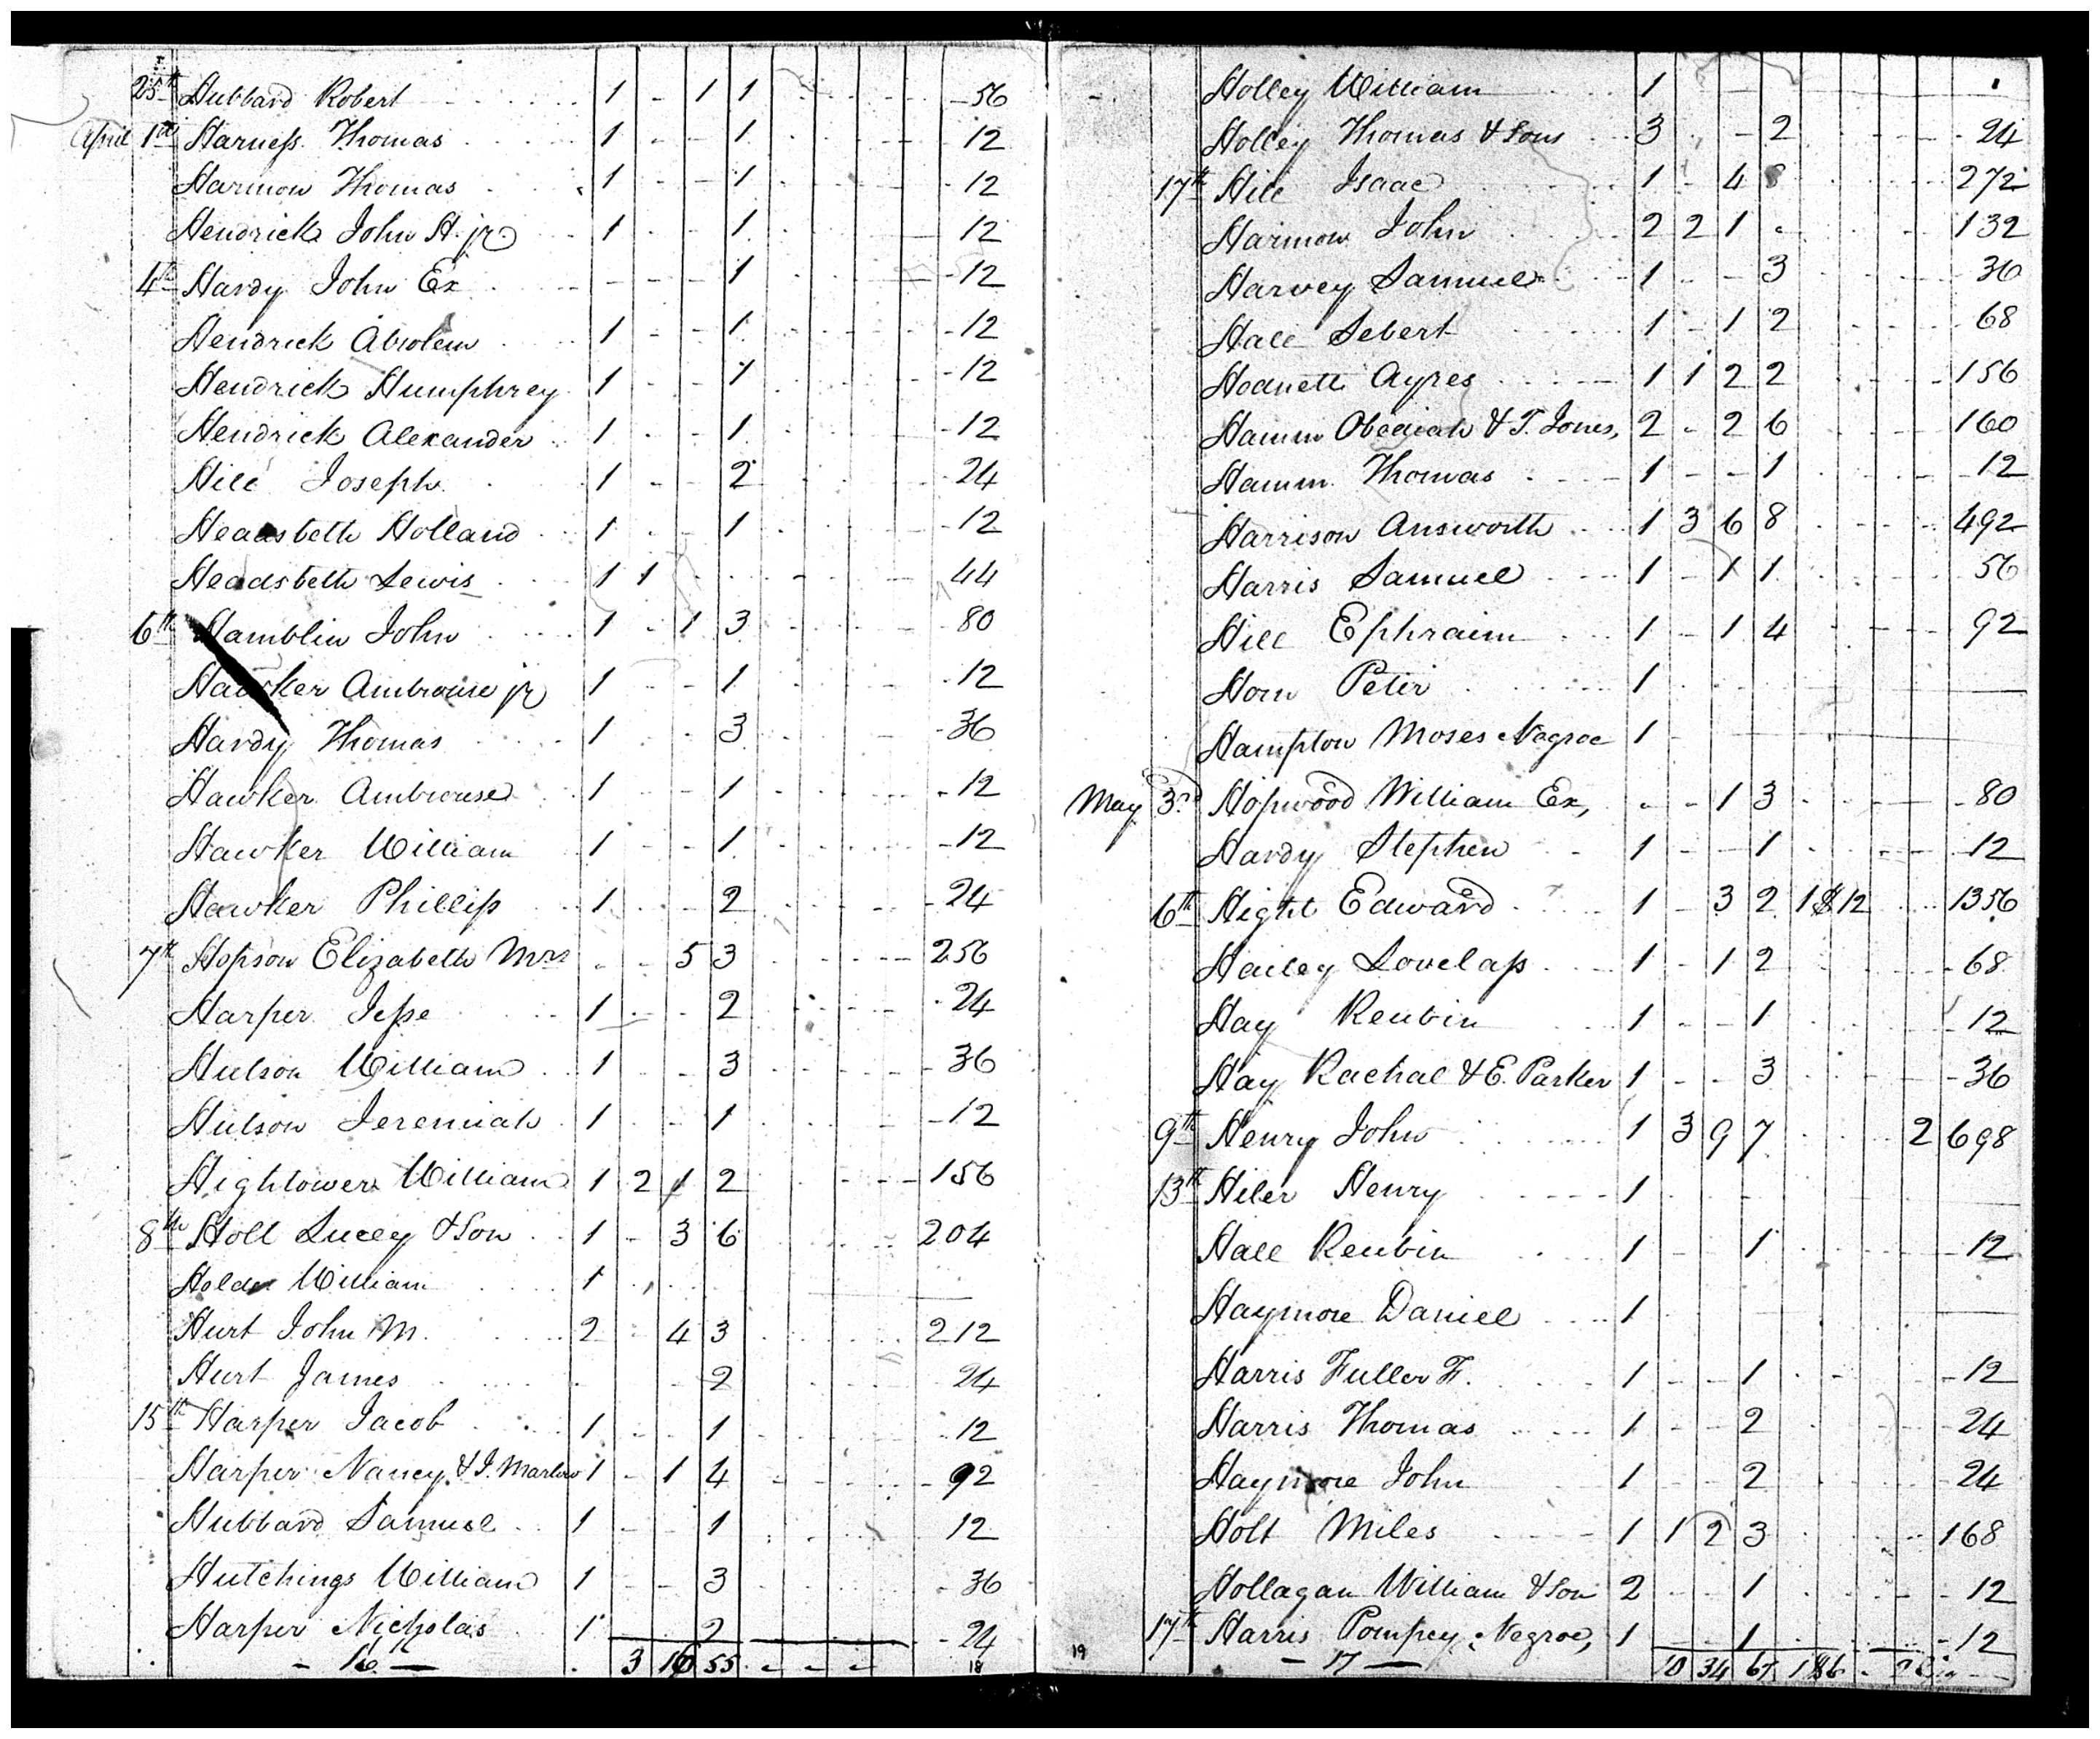 25th Hubbard Robert 1 - 1 1 56
April 1st Harness Thomas 1 - - 1 12
Harmon Thomas 1 - - 1 12
Hendrick John H. jr. 1 - - 1 12
4th Hardy John Ex - - - 1 12
Hendrick Absolem 1 - - 1 12
Hendrick Humphrey 1 - - 1 12
Hendrick Alexander 1 - - 1 12
Hill Joseph 1 - - 2 24
Headsbeth Holland 1 - - 1 12
Headsbeth Lewis 1 1 44
6th Hamblin John 1 - 1 3 80
Hawker Ambrouse jr 1 - - 1 12
Hardy Thomas 1 - - 3 36
Hawker Ambrouse 1 - - 1 12
Hawker William 1 - - 1 12
Hawker Phillip 1 - - 2 24
7th Hopson Elizabeth Mrs - - 5 3 256
Harper Jesse 1 - - 2 24
Hulson William 1 - - 3 36
Hulson Jeremiah 1 - - 1 12
Hightower William 1 2 1 2 156
8th Holl Lucey & Son 1 - 3 6 204
Holder William 1
Hurt John M. 2 - 4 3 212
Hurt James - - - 2 24
15th Harper Jacob 1 1 12
Harper Nancy & J. Marlow 1 - 1 4 92
Hubbard Samuel 1 - - 1 12
Hutchings William 1 - - 3 36
Harper Nicholas 1 2 24
- 16 - 3 16 55 - - - 18
Holley William 1
Holley Thomas & Sons 3 - - 2 24
17th Hill Isaac 1 - 4 8 272
Harmon John 2 2 1 - 132
Harvey Samuel 1 - - 3 36
Hall Sebert 1 - 1 2 68
Hodnett Ayres 1 1 2 2 156
Hamm Obediah & T. Jones, 2 - 2 6 160
Hamm Thomas 1 - - 1 12
Harrison Answorth 1 3 6 8 492
Harris Samuel 1 - 1 1 56
Hill Ephraim 1 - 1 4 92
Horn Peter 1
Hampton Moses Negroe 1
May 3rd Hopwood William Ex, - - 1 3 80
Hardy Stephen 1 - - 1 12
6th Hight Edward 1 - 3 2 1 12 1356
Hailey Lovelass 1 - 1 2 68
Hay Reubin 1 - - 1 12
Hay Rachal & E. Parker 1 - - 3 36
9th Henry John 1 3 9 7 2 698
13th Hiler Henry 1
Hall Reubin 1 - 1 12
Haymore Daniel 1
Harris Fuller F. 1 - - 1 12
Harris Thomas 1 - - 2 24
Haymore John 1 - - 2 24
Holt Miles 1 1 2 3 168
Hollagan William & Son 2 - - 1 12
17th Harris Pompey, Negroe, 1 1 12
19 - 17 - 10 34 67